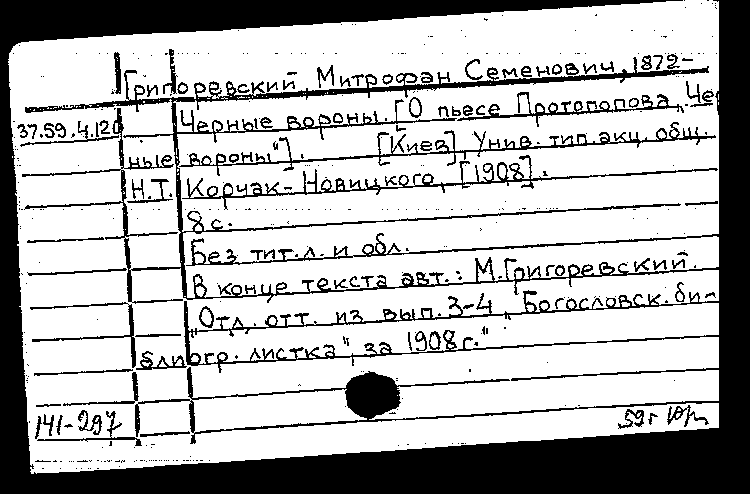 Григоревский, Митрофан Семенович, 1872-
37.59.4.120 Черные вороны. [О пьесе Протопопова „Чер
ные вороны"]. [Киев], Унив. тип. акц. общ.
Н.Т. Корчак-Новицкого, [1908].
8 с.
Без тит. л. и обл.
В конце текста авт.: М. Григоревский.
„Отд. отт. из вып. 3-4 „Богословск. би-
блиогр. листка", за 1908 г."
141-297
59 г